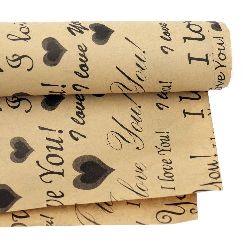 I lo
I love You!
I love You!
I love You!
I lo
ove You!
I love You!
I love You!
I love